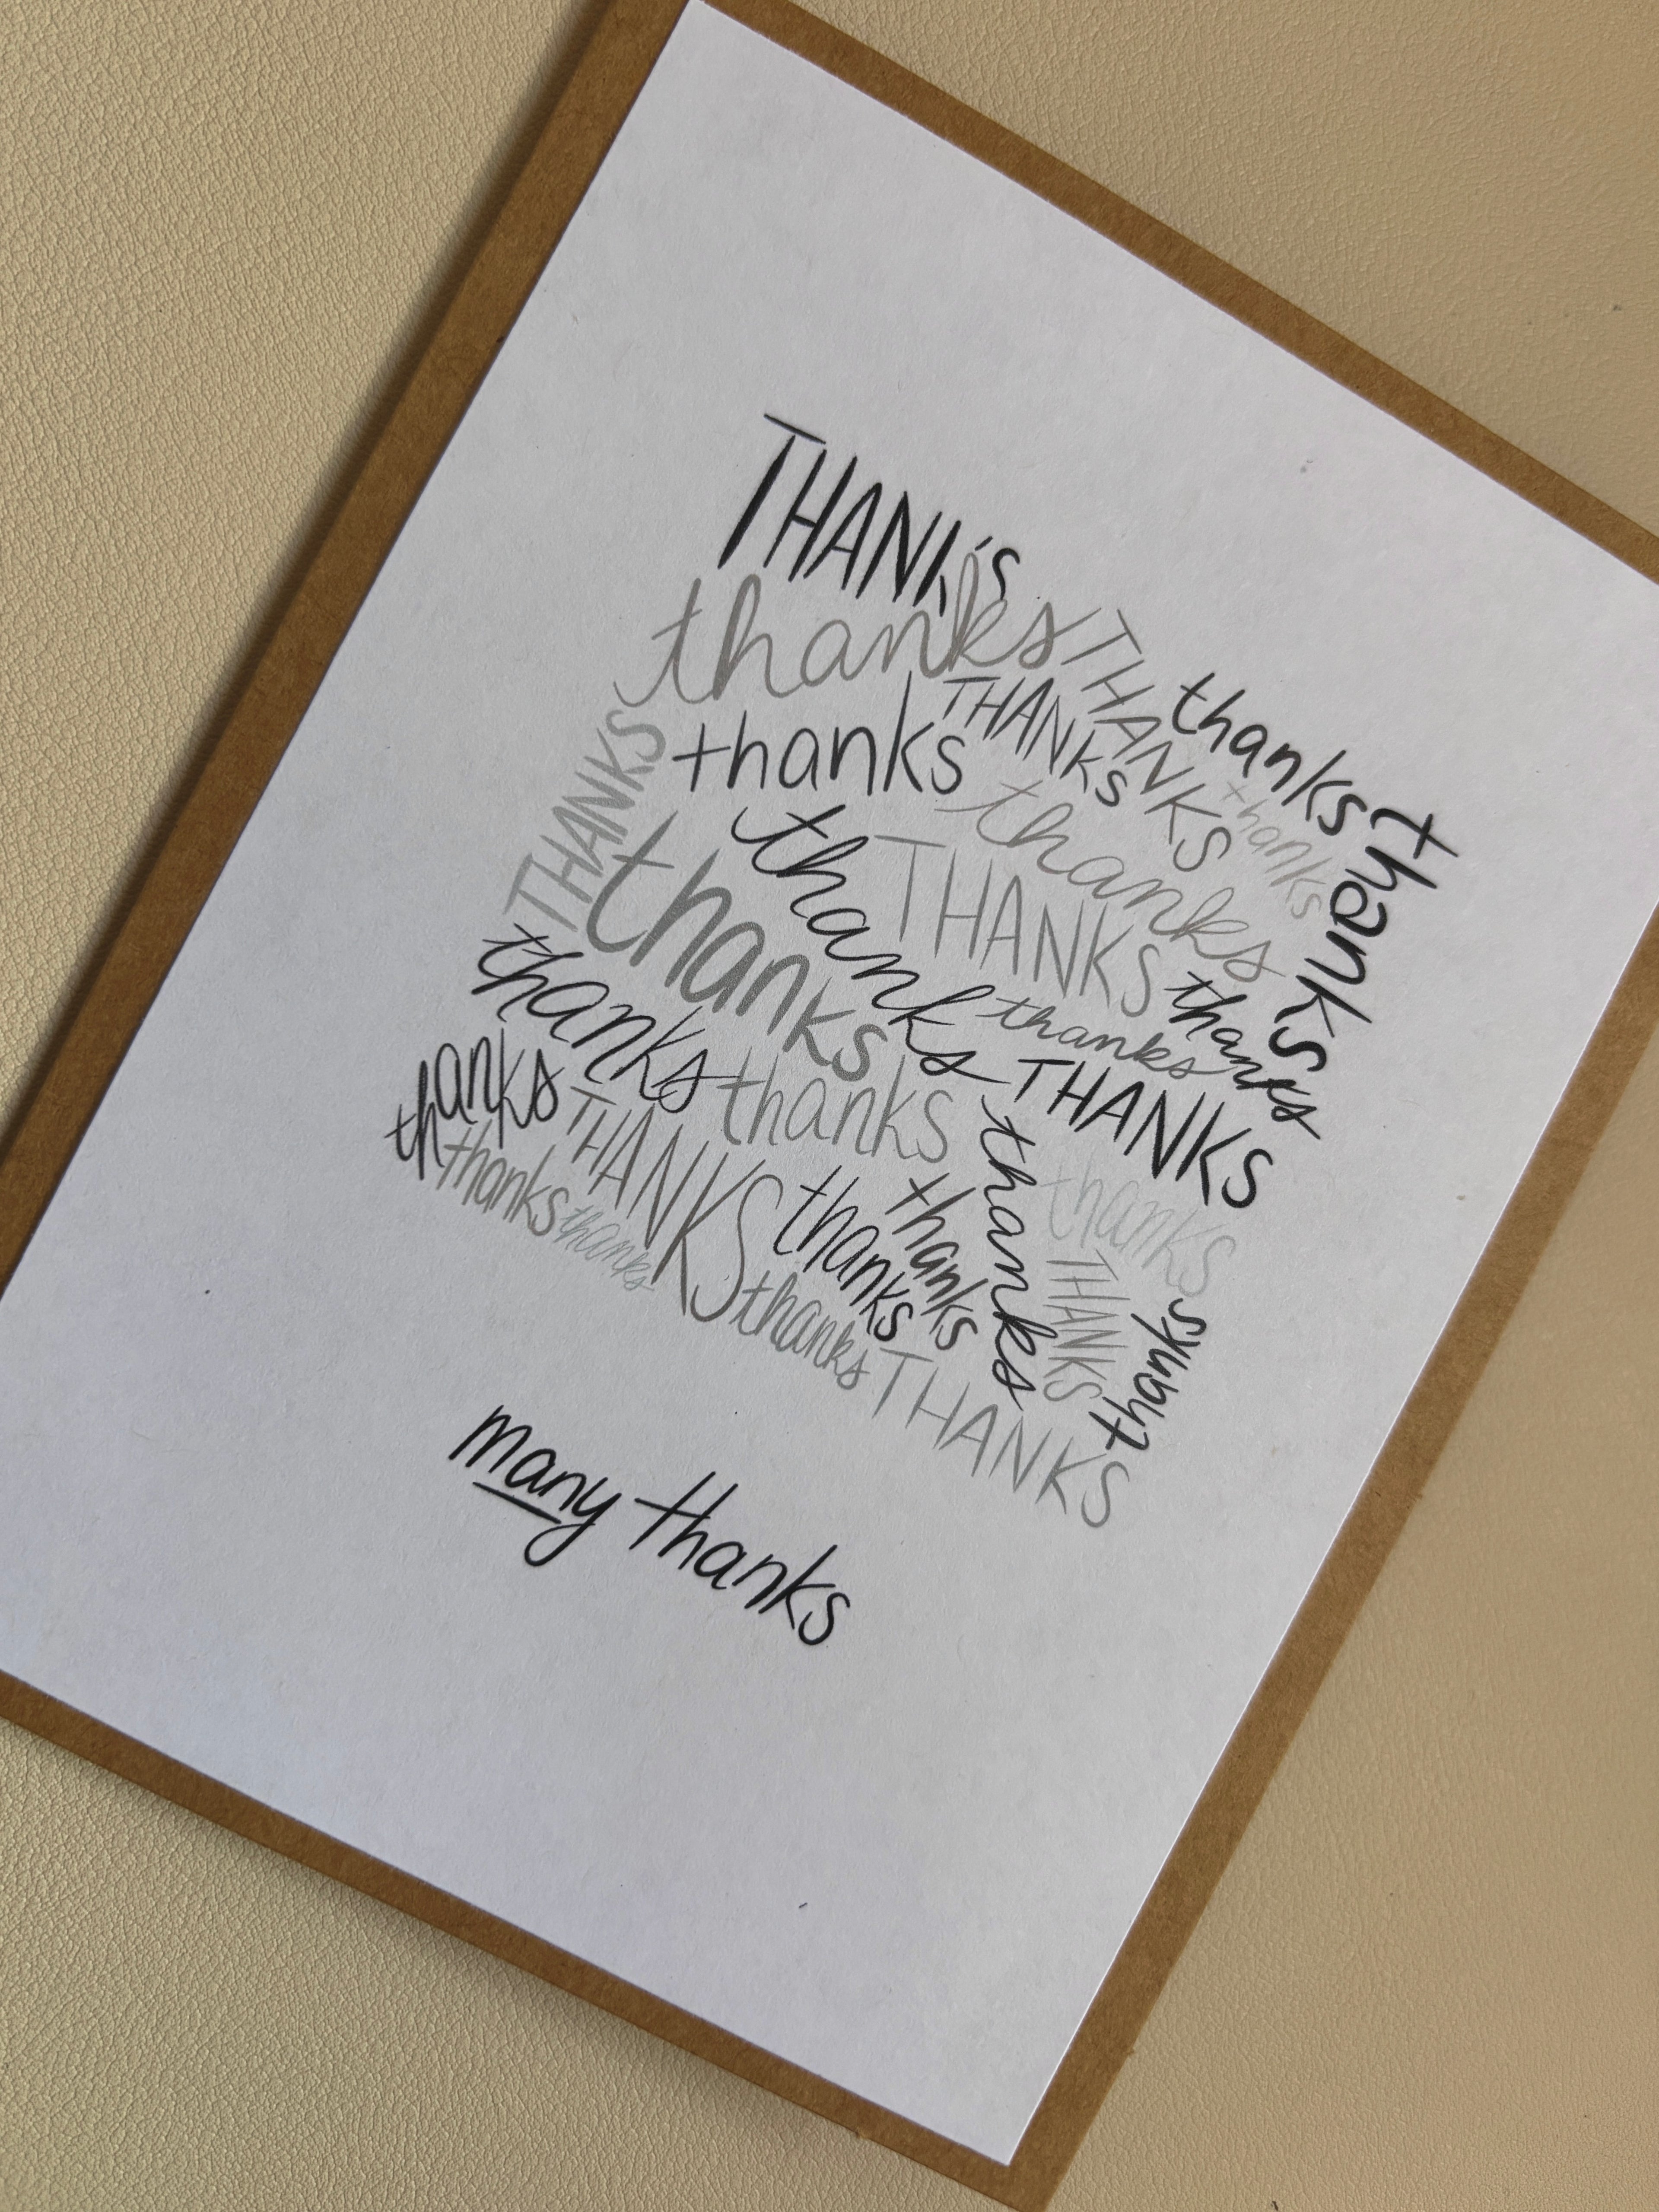 THANKS
thanks
THANKS
thanks
thanks
THANKS
thanks
thanks
THANKS
thanks
thanks
THANKS
thanks
thanks
thanks
thanks
THANKS
thanks
thanks
THANKS
thanks
thanks
thanks
thanks
thanks
thanks
THANKS
thanks
thanks
THANKS
many thanks